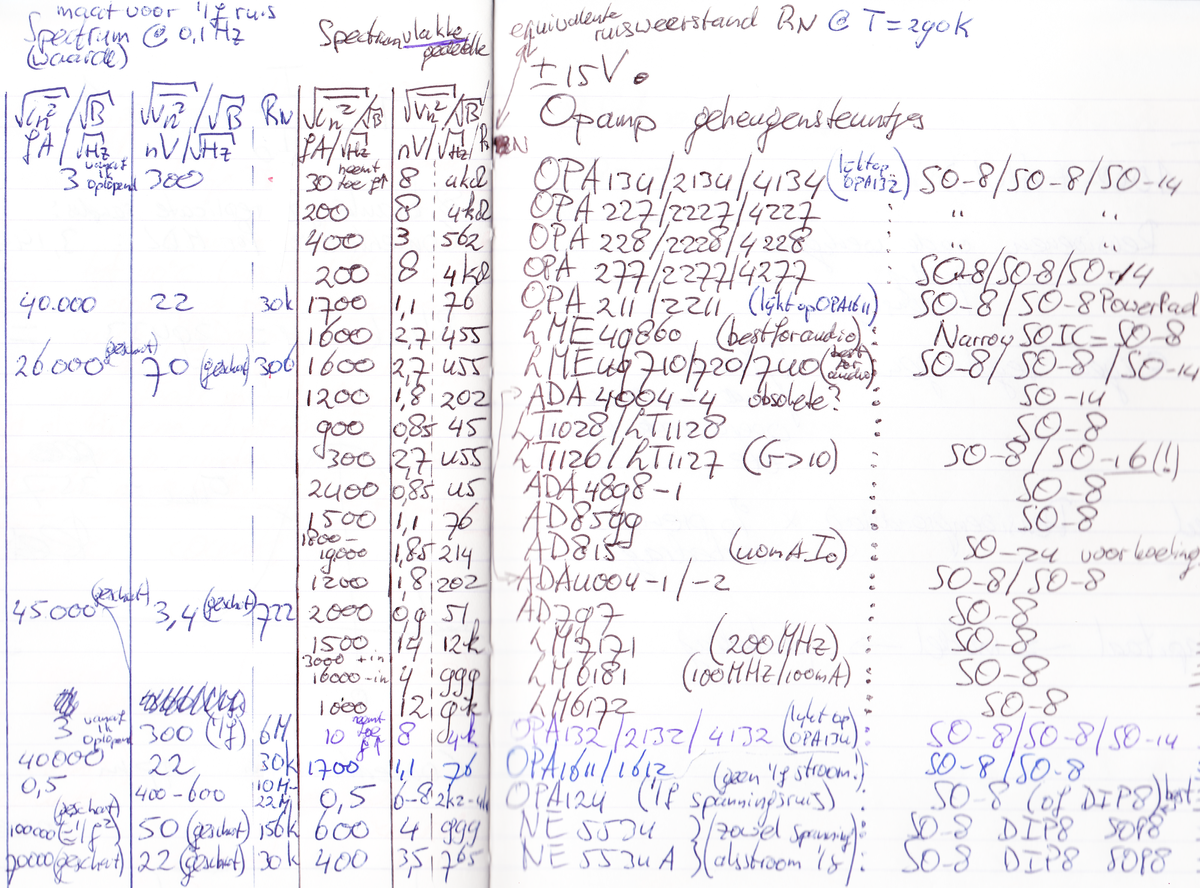 maat voor 1/f ruis
Spectrum @ 0,1Hz
(waarde)
Spectrum vlakke
gedeelte
equivalente
ruisweerstand RN @ T=290K
±15V
Opamp geheugensteuntjes
√in²/√B √vn²/√B RN √in²/√B √vn²/√B RN
fA/√Hz nV/√Hz fA/√Hz nV/√Hz
3 vanaf 1k oplopend 300 30 neemt toe f↑ 8 4kΩ OPA134/2134/4134 (lijkt op OPA132) SO-8/SO-8/SO-14
200 8 4kΩ OPA 227/2227/4227 " "
400 3 562 OPA 228/2228/4228 " "
200 8 4kΩ OPA 277/2277/4277 : SO-8/SO-8/SO-14
40.000 22 30k 1700 1,1 76 OPA 211/2211 (lijkt op OPA1611) : SO-8/SO-8 PowerPad
1600 2,7 455 LME 49860 (best for audio) : Narrow SOIC = SO-8
26000 (geschat) 70 (geschat) 306 1600 2,7 455 LME49710/720/740 (best for audio) : SO-8/SO-8/SO-14
1200 1,8 202 ADA 4004-4 obsolete? : SO-14
900 0,85 45 LT1028/LT1128 : SO-8
300 2,7 455 LT1126/LT1127 (G>10) : SO-8/SO-16(!)
2400 0,85 45 ADA4898-1 : SO-8
1500 1,1 76 AD8599 : SO-8
1800-19000 1,85 214 AD815 (40mA Io) : SO-24 voor koeling
1200 1,8 202 ADA4004-1/-2 : SO-8/SO-8
45.000 (geschat) 3,4 (geschat) 722 2000 0,9 51 AD797 : SO-8
1500 14 12k LM7171 (200MHz) : SO-8
3000 +in 16000 -in 4 999 LM6181 (100MHz/100mA) : SO-8
1000 12 9k LM6172 : SO-8
3 vanaf 1k oplopend 300 (1/f) 6M 10 neemt toe f↑ 8 4k OPA132/2132/4132 (lijkt op OPA134) : SO-8/SO-8/SO-14
40000 22 30k 1700 1,1 76 OPA1611/1612 : SO-8/SO-8
0,5 400-600 10M-22M 0,5 6-8 2k2-4k OPA124 (geen 1/f stroom!) (1/f spanningsruis) : SO-8 (of DIP8)
100000 (geschat) (=1/f²) 50 (geschat) 156k 600 4 999 NE 5534 }(zowel spanning : SO-8 DIP8 SOP8
70000 (geschat) 22 (geschat) 30k 400 3,5 765 NE 5534A }(als stroom 1/f) : SO-8 DIP8 SOP8